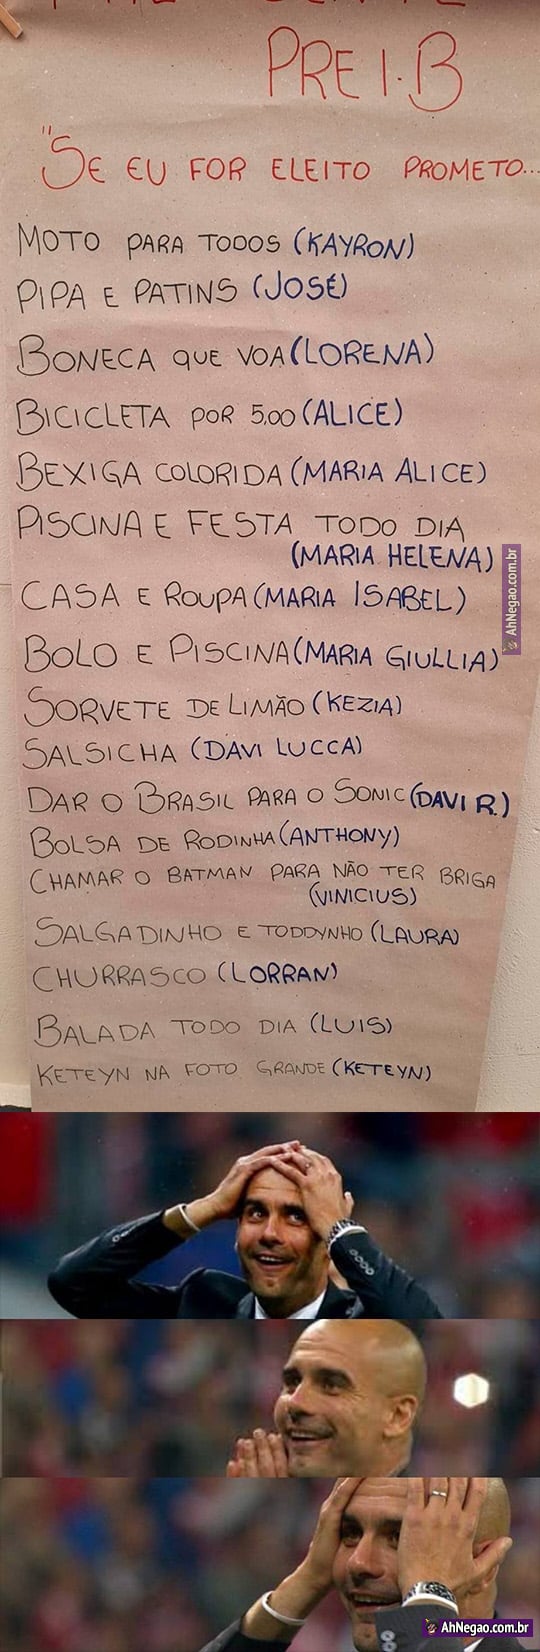 PRE I.B
"SE EU FOR ELEITO PROMETO...
MOTO PARA TODOS (KAYRON)
PIPA E PATINS (JOSÉ)
BONECA QUE VOA (LORENA)
BICICLETA POR 5,00 (ALICE)
BEXIGA COLORIDA (MARIA ALICE)
PISCINA E FESTA TODO DIA
(MARIA HELENA)
CASA E ROUPA (MARIA ISABEL)
BOLO E PISCINA (MARIA GIULLIA)
SORVETE DE LIMÃO (KEZIA)
SALSICHA (DAVI LUCCA)
DAR O BRASIL PARA O SONIC (DAVI R.)
BOLSA DE RODINHA (ANTHONY)
CHAMAR O BATMAN PARA NÃO TER BRIGA
(VINICIUS)
SALGADINHO E TODDYNHO (LAURA)
CHURRASCO (LORRAN)
BALADA TODO DIA (LUIS)
KETEYN NA FOTO GRANDE (KETEYN)
AhNegao.com.br
AhNegao.com.br